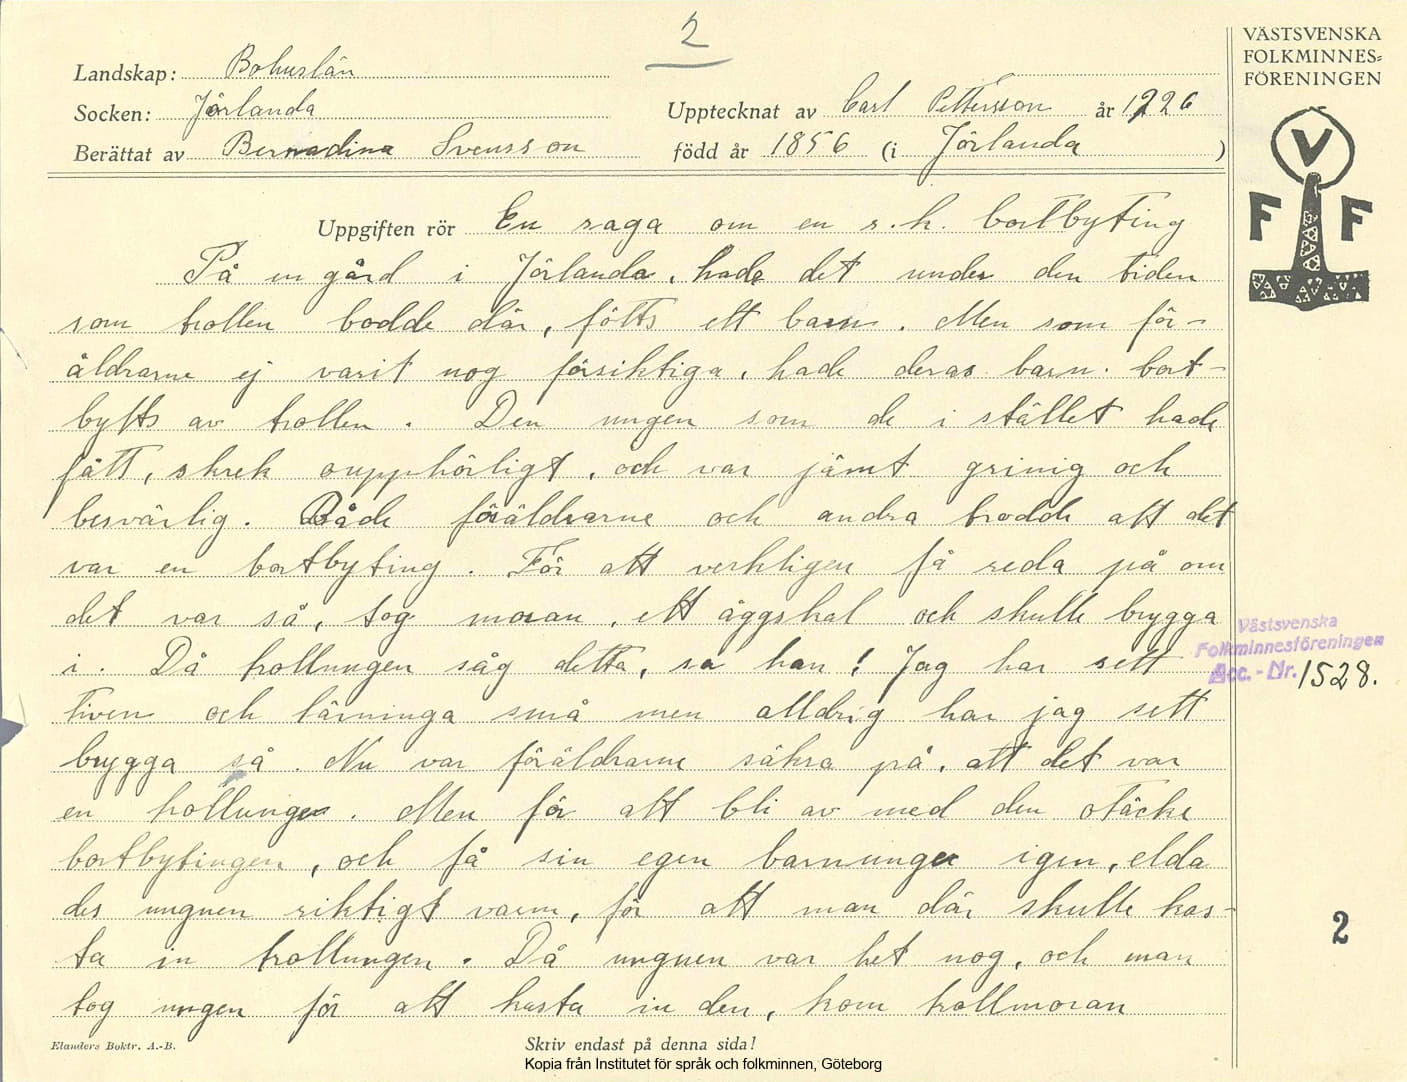 2
VÄSTSVENSKA
FOLKMINNES=
FÖRENINGEN
Landskap: Bohuslän
Socken: Jörlanda
Upptecknat av Carl Pettersson år 1926
Berättat av Bernadina Svensson
född år 1856 (i Jörlanda)
V
F F
Uppgiften rör En saga om en s.k. bortbyting
På en gård i Jörlanda, hade det under den tiden
som trollen bodde där, fötts ett barn. Men som för-
äldrarne ej varit nog försiktiga, hade deras barn bort-
bytts av trollen. Den ungen som de i stället hade
fått, skrek oupphörligt, och var jämt grinig och
besvärlig. Både föräldrarne och andra trodde att det
var en bortbyting. För att verkligen få reda på om
det var så, tog moran, ett äggskal och skulle brygga
i. Då trollungen såg detta, sa han! Jag har sett
tiven och tärninga små men alldrig har jag sett
brygga så. Nu var föräldrarne säkra på, att det var
en trollunge. Men för att bli av med den otäcke
bortbytingen, och få sin egen barnunge igen, elda
des ungnen riktigt varm, för att man där skulle kas-
ta in trollungen. Då ungnen var het nog, och man
tog ungen för att kasta in den, kom trollmoran
Västsvenska
Folkminnesföreningen
Acc.-Nr. 1528.
2
Elanders Boktr. A.-B.
Skriv endast på denna sida!
Kopia från Institutet för språk och folkminnen, Göteborg